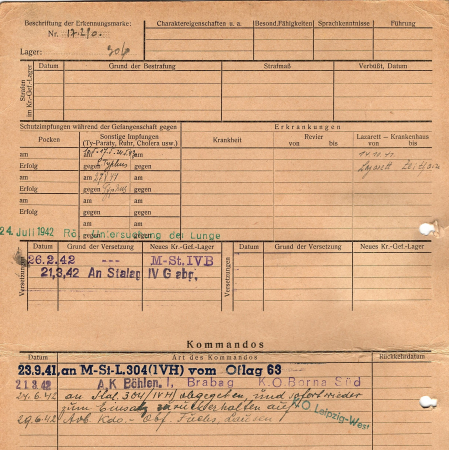 Beschriftung der Erkennungsmarke:
Nr. 17210.
Lager: 304
Charaktereigenschaften u. a.
Besond. Fähigkeiten
Sprachkenntnisse
Führung
Strafen im Kr.-Gef.-Lager
Datum
Grund der Bestrafung
Strafmaß
Verbüßt, Datum
Schutzimpfungen während der Gefangenschaft gegen
Pocken
Sonstige Impfungen
(Ty-Paraty, Ruhr, Cholera usw.)
am am am
Erfolg gegen Typhus gegen
am am am
Erfolg gegen Typhus gegen
am am am
Erfolg gegen gegen
am am am
Erfolg gegen gegen
Erkrankungen
Krankheit
Revier
von bis
Lazarett - Krankenhaus
von bis
Lazarett
24. Juli 1942 Rö. Untersuchung der Lunge
Versetzungen
Datum
Grund der Versetzung
Neues Kr.-Gef.-Lager
26.2.42 --- M-St. IVB
21.3.42 An Stalag IV G abg.
Versetzungen
Datum
Grund der Versetzung
Neues Kr.-Gef.-Lager
Kommandos
Datum
Art des Kommandos
Rückkehrdatum
23.9.41, an M-St-L.304(IVH) vom Oflag 63
21.3.42 A.K Böhlen. I, Brabag K.O. Borna Süd
24.6.42 an Stal. 304/IVH/ abgegeben, und sofort wieder
zum Einsatz zurückerhalten auf KO Leipzig-West
29.6.42 Arb Kdo.